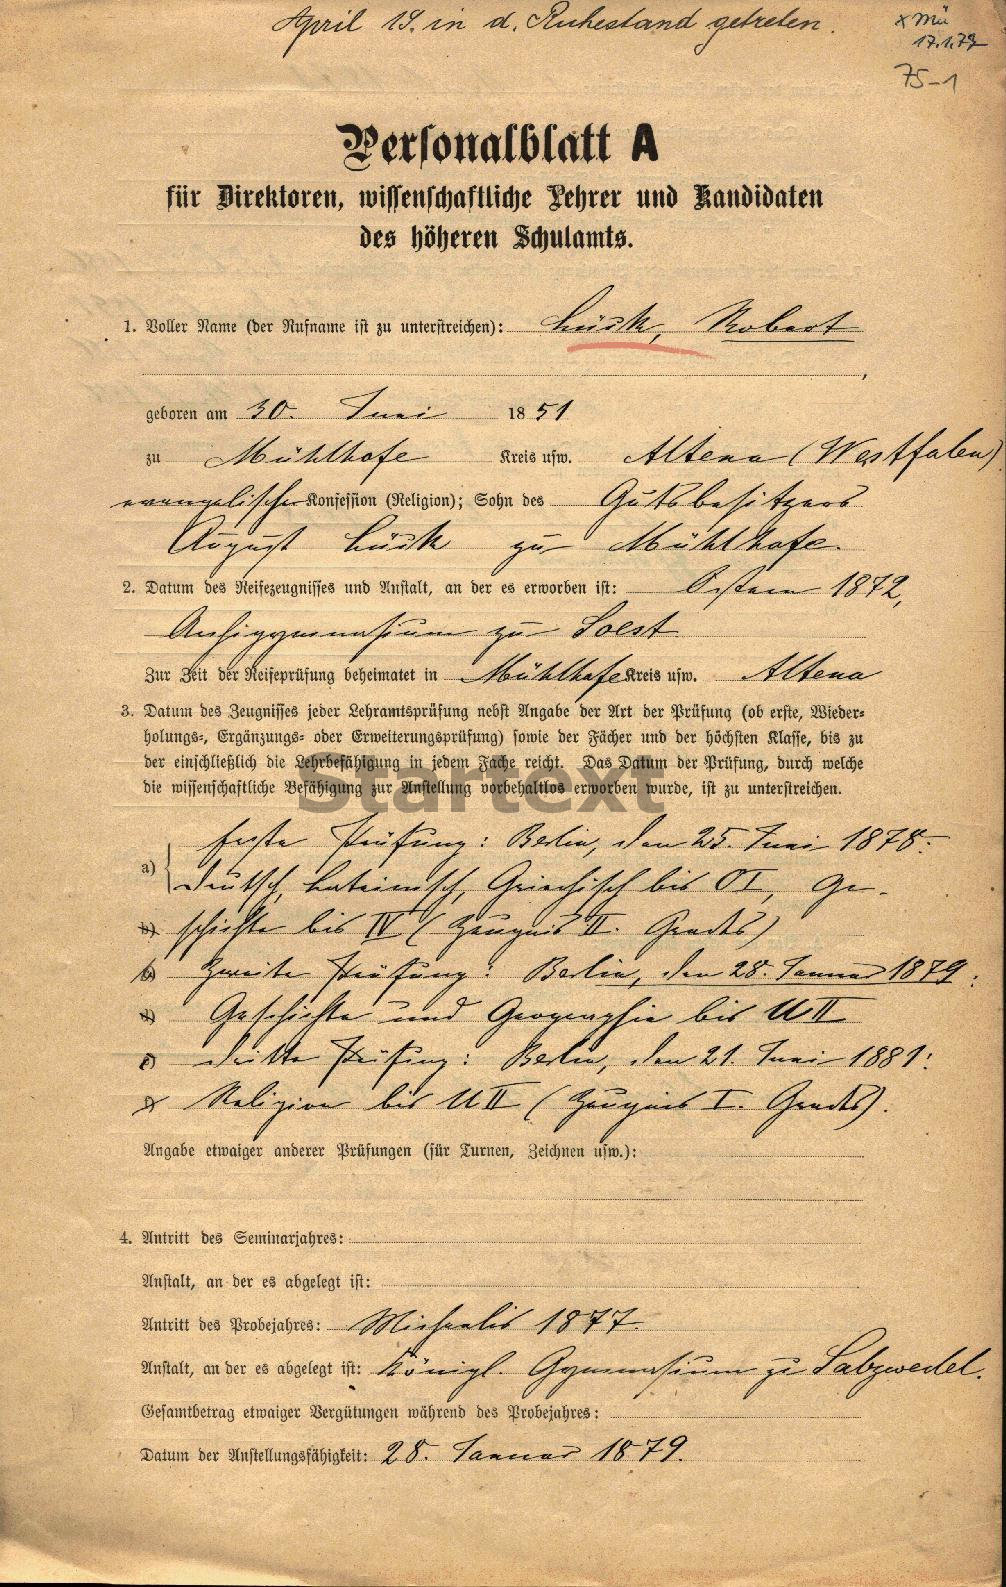 April 19. in d. Ruhestand getreten.
x Mü
17.1.79
75-1
Personalblatt A
für Direktoren, wissenschaftliche Lehrer und Kandidaten
des höheren Schulamts.
1. Voller Name (der Rufname ist zu unterstreichen): Lück, Robert
geboren am 30. Juni 1851
zu Mühlhofe Kreis usw. Altena (Westfalen)
evangelischer Konfession (Religion); Sohn des Gutsbesitzers
August Lück zu Mühlhofe.
2. Datum des Reifezeugnisses und Anstalt, an der es erworben ist: Ostern 1872,
Archigymnasium zu Soest
Zur Zeit der Reifeprüfung beheimatet in Mühlhofe Kreis usw. Altena
3. Datum des Zeugnisses jeder Lehramtsprüfung nebst Angabe der Art der Prüfung (ob erste, Wieder-
holungs-, Ergänzungs- oder Erweiterungsprüfung) sowie der Fächer und der höchsten Klasse, bis zu
der einschließlich die Lehrbefähigung in jedem Fache reicht. Das Datum der Prüfung, durch welche
die wissenschaftliche Befähigung zur Anstellung vorbehaltlos erworben wurde, ist zu unterstreichen.
Startext
erste Prüfung: Berlin, den 25. Juni 1878:
a) Deutsch, Lateinisch, Griechisch bis OI, Ge-
b) schichte bis IV (Zeugnis II. Grades)
Zweite Prüfung: Berlin, den 28. Januar 1879:
d) Geschichte und Geographie bis UII
dritte Prüfung: Berlin, den 21. Juni 1881:
Religion bis UII (Zeugnis I. Grades).
Angabe etwaiger anderer Prüfungen (für Turnen, Zeichnen usw.):
4. Antritt des Seminarjahres:
Anstalt, an der es abgelegt ist:
Antritt des Probejahres: Michaelis 1877.
Anstalt, an der es abgelegt ist: Königl. Gymnasium zu Salzwedel.
Gesamtbetrag etwaiger Vergütungen während des Probejahres:
Datum der Anstellungsfähigkeit: 28. Januar 1879.